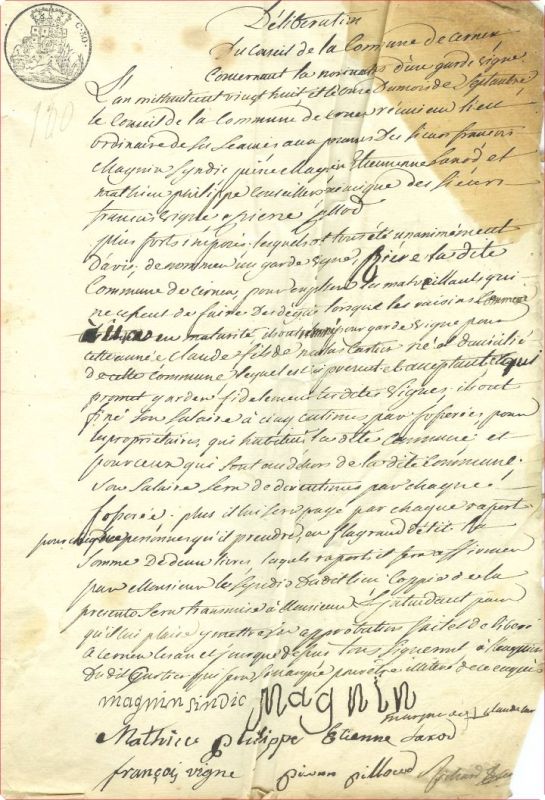 Déliberation
Du Conseil de la Commune de Cernex
Concernant la nomination d'un garde vigne
L'an mil huit cent vingt huit et le onze du mois de Septembre
le Conseil de la Commune de Cernex réuni en lieu
ordinaire de ses séances aux personnes des sieurs françois
Magnin Syndic pierre Magnin Etiennne Sarod et
Mathieu philippe Conseillers des sieurs
francois vigne et pierre pillod
plus forts imposés lesquels ont tous été unanimément
d'avis de nommer un garde vigne, rière la dite
Commune de Cernex, pour empecher les malveillants qui
ne cessent de faire des dégats lorsque les raisins
en maturité, ils ont nommé pour garde vigne pour
cette année Claude fils de Cartier né et domicilié
de cette commune lequel est à présent et acceptant et qui
promet garder fidelement les dites vignes, ils ont
fixé son salaire à cinq centimes par fosserées, pour
les propriétaires, qui habitent la dite Commune, et
pour ceux qui sont au déhors de la dite Commune.
Son salaire sera de dix centimes par chaque
fosserée. plus il lui sera payé par chaque rapport
pour chaque personne qu'il prendra, au flagrand délit la
somme de deux livres, lequel raport il fera affirmer
par Monsieur le Syndic du dit lieu Coppie de la
presente sera transmise à Monsieur L'jntendant pour
qu'il lui plaise y mettre son approbation fait et délibéré
à Cernex les an et jour que dessus tous signerent à
du dit Cartier qui fera sa marque pour être illitéré de ce enquis
magnin sindic magnin
marque de Claude
Mathieu philippe Etienne Sarod
françois vigne pierre pilloud